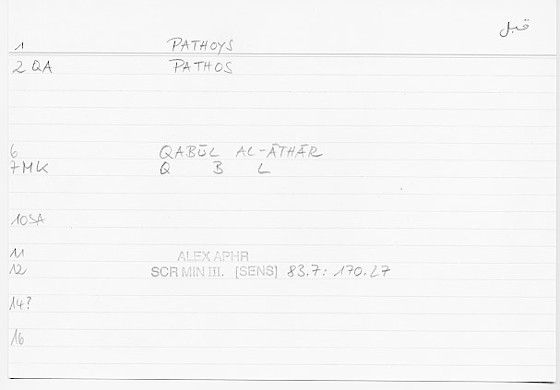 قبل
1 PATHOYS
2 QA PATHOS
6 QABŪL AL-ĀTHĀR
7 MK Q B L
10 SA
11 ALEX APHR
12 SCR MIN III. [SENS] 83.7: 170.27
14?
16